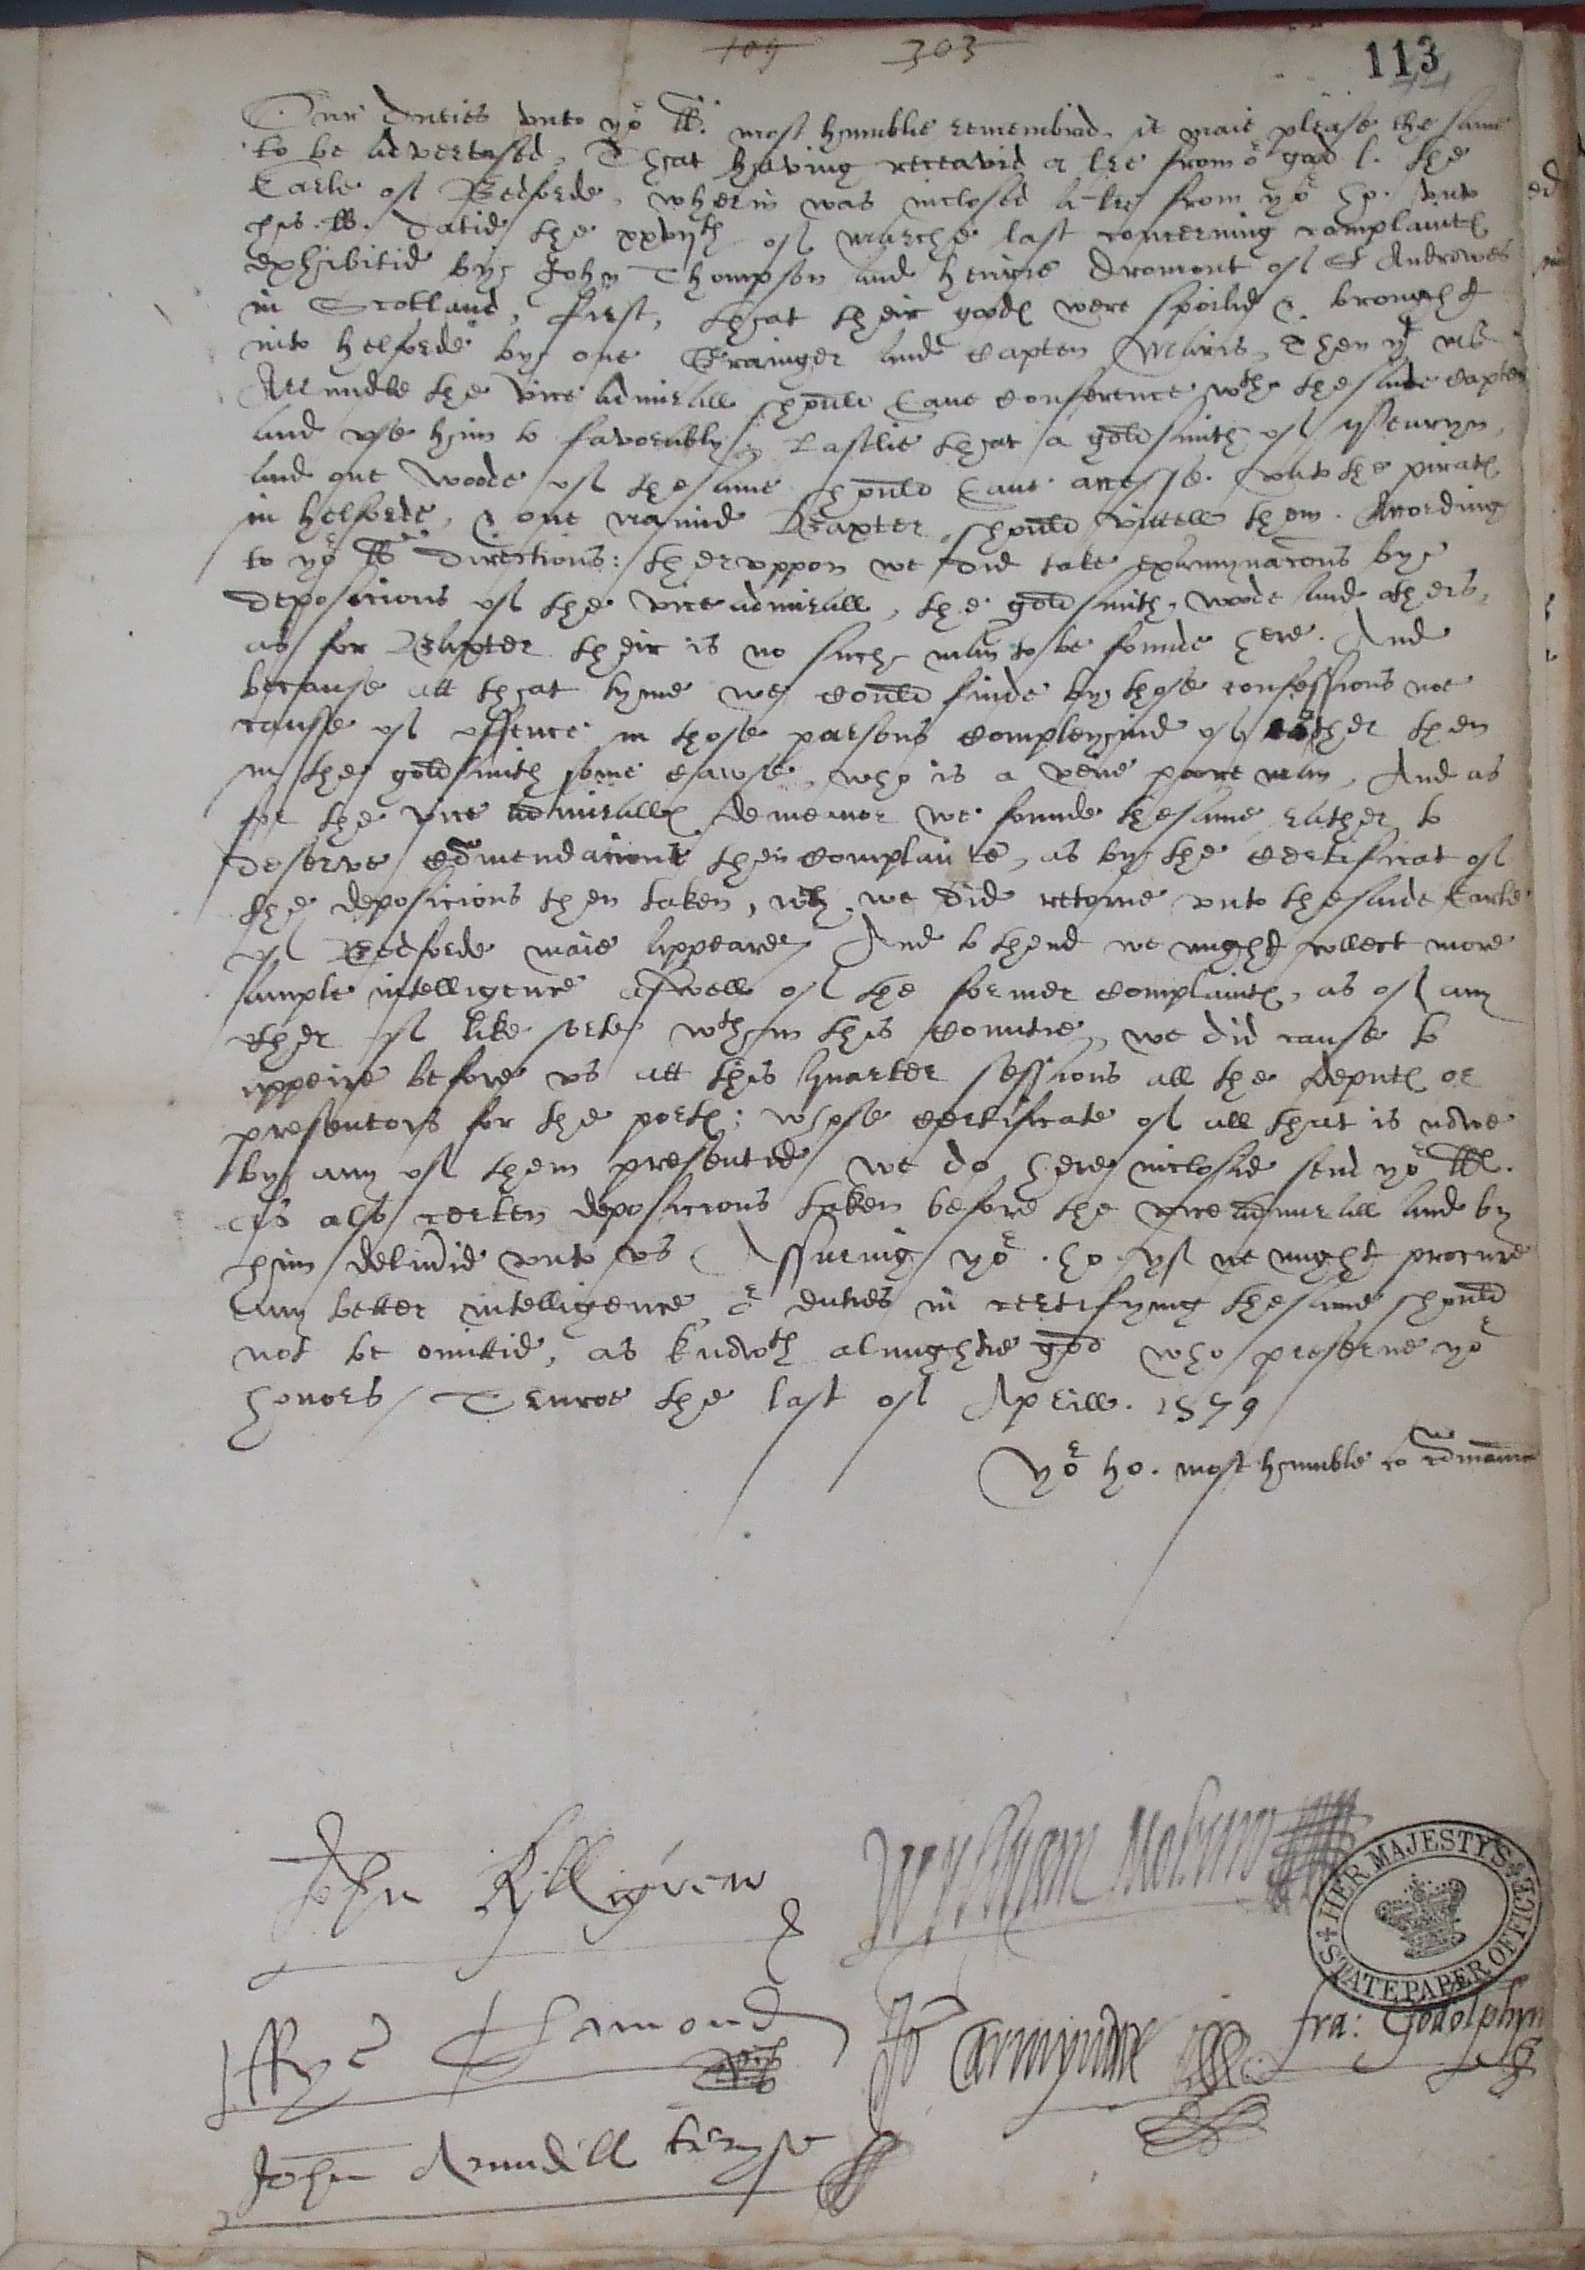 109 303 113
Our dueties unto yor LL. most humblie remembrid. it maie please the same
to be advertased, That having receavid a lre from or good l. the
Earle of Bedforde, wherin was inclosed a lre from yor ho. unto
his LL. datid the xxvijth of Marche last concerning complaintes
exhibitid by John Thompson and Henrie Dromont of St Andrewes
in Scotland, First, that their goodes were spoilid & brought
into Helforde by one Grainger and Capten Maris, Then yt Mr
Arundle the vice admirall should have conference wth the saide Capten
and use him so favorably, Lastlie that a goldsmith of
and one Woode of the same should have accesse unto the pirates
in Helforde, & one namid Baxter should vittell them. According
to yor LLs directions: theruppon we did take examynacons bye
deposicions of the vice admirall, the goldsmith, Woode and others,
as for Baxter their is no such man to be founde here. And
because att that tyme we could finde by those confessions noe
cause of offence in those parsons complaynid of other then
in the goldsmith some cawse, who is a verie poore man, And as
for the vice admiralles demenor we founde the same rather to
deserve comendacions then complainte, as by the certificat of
the deposicions then taken, wch we did retorne unto the saide Earle
of Bedforde maie appeare, And to thend we might collect more
ample intelligence aswell of the former complaintes, as of any
other of like sorte wthin this countie, we did cause to
appeire before us att this quarter sessions all the deputes or
presentors for the portes; whose certificate of all that is nowe
by any of them presentid we do here inclosid send yor LLs.
as also certen deposicions taken before the vice admirall and by
him delivrid unto us Assuring yor ho. yf we might procure
any better intelligence, or duties in certifying the same should
not be omittid, as knowth almightie god who preserve yor
honors / Truroe the last of Aprill. 1579
Yor ho. most humble to comaund
John Kylligrew Wyllyam Mohun
Chamond Jo Carmynow fra: Godolphyn
John Arundell treryse
HER MAJESTY'S STATE PAPER OFFICE